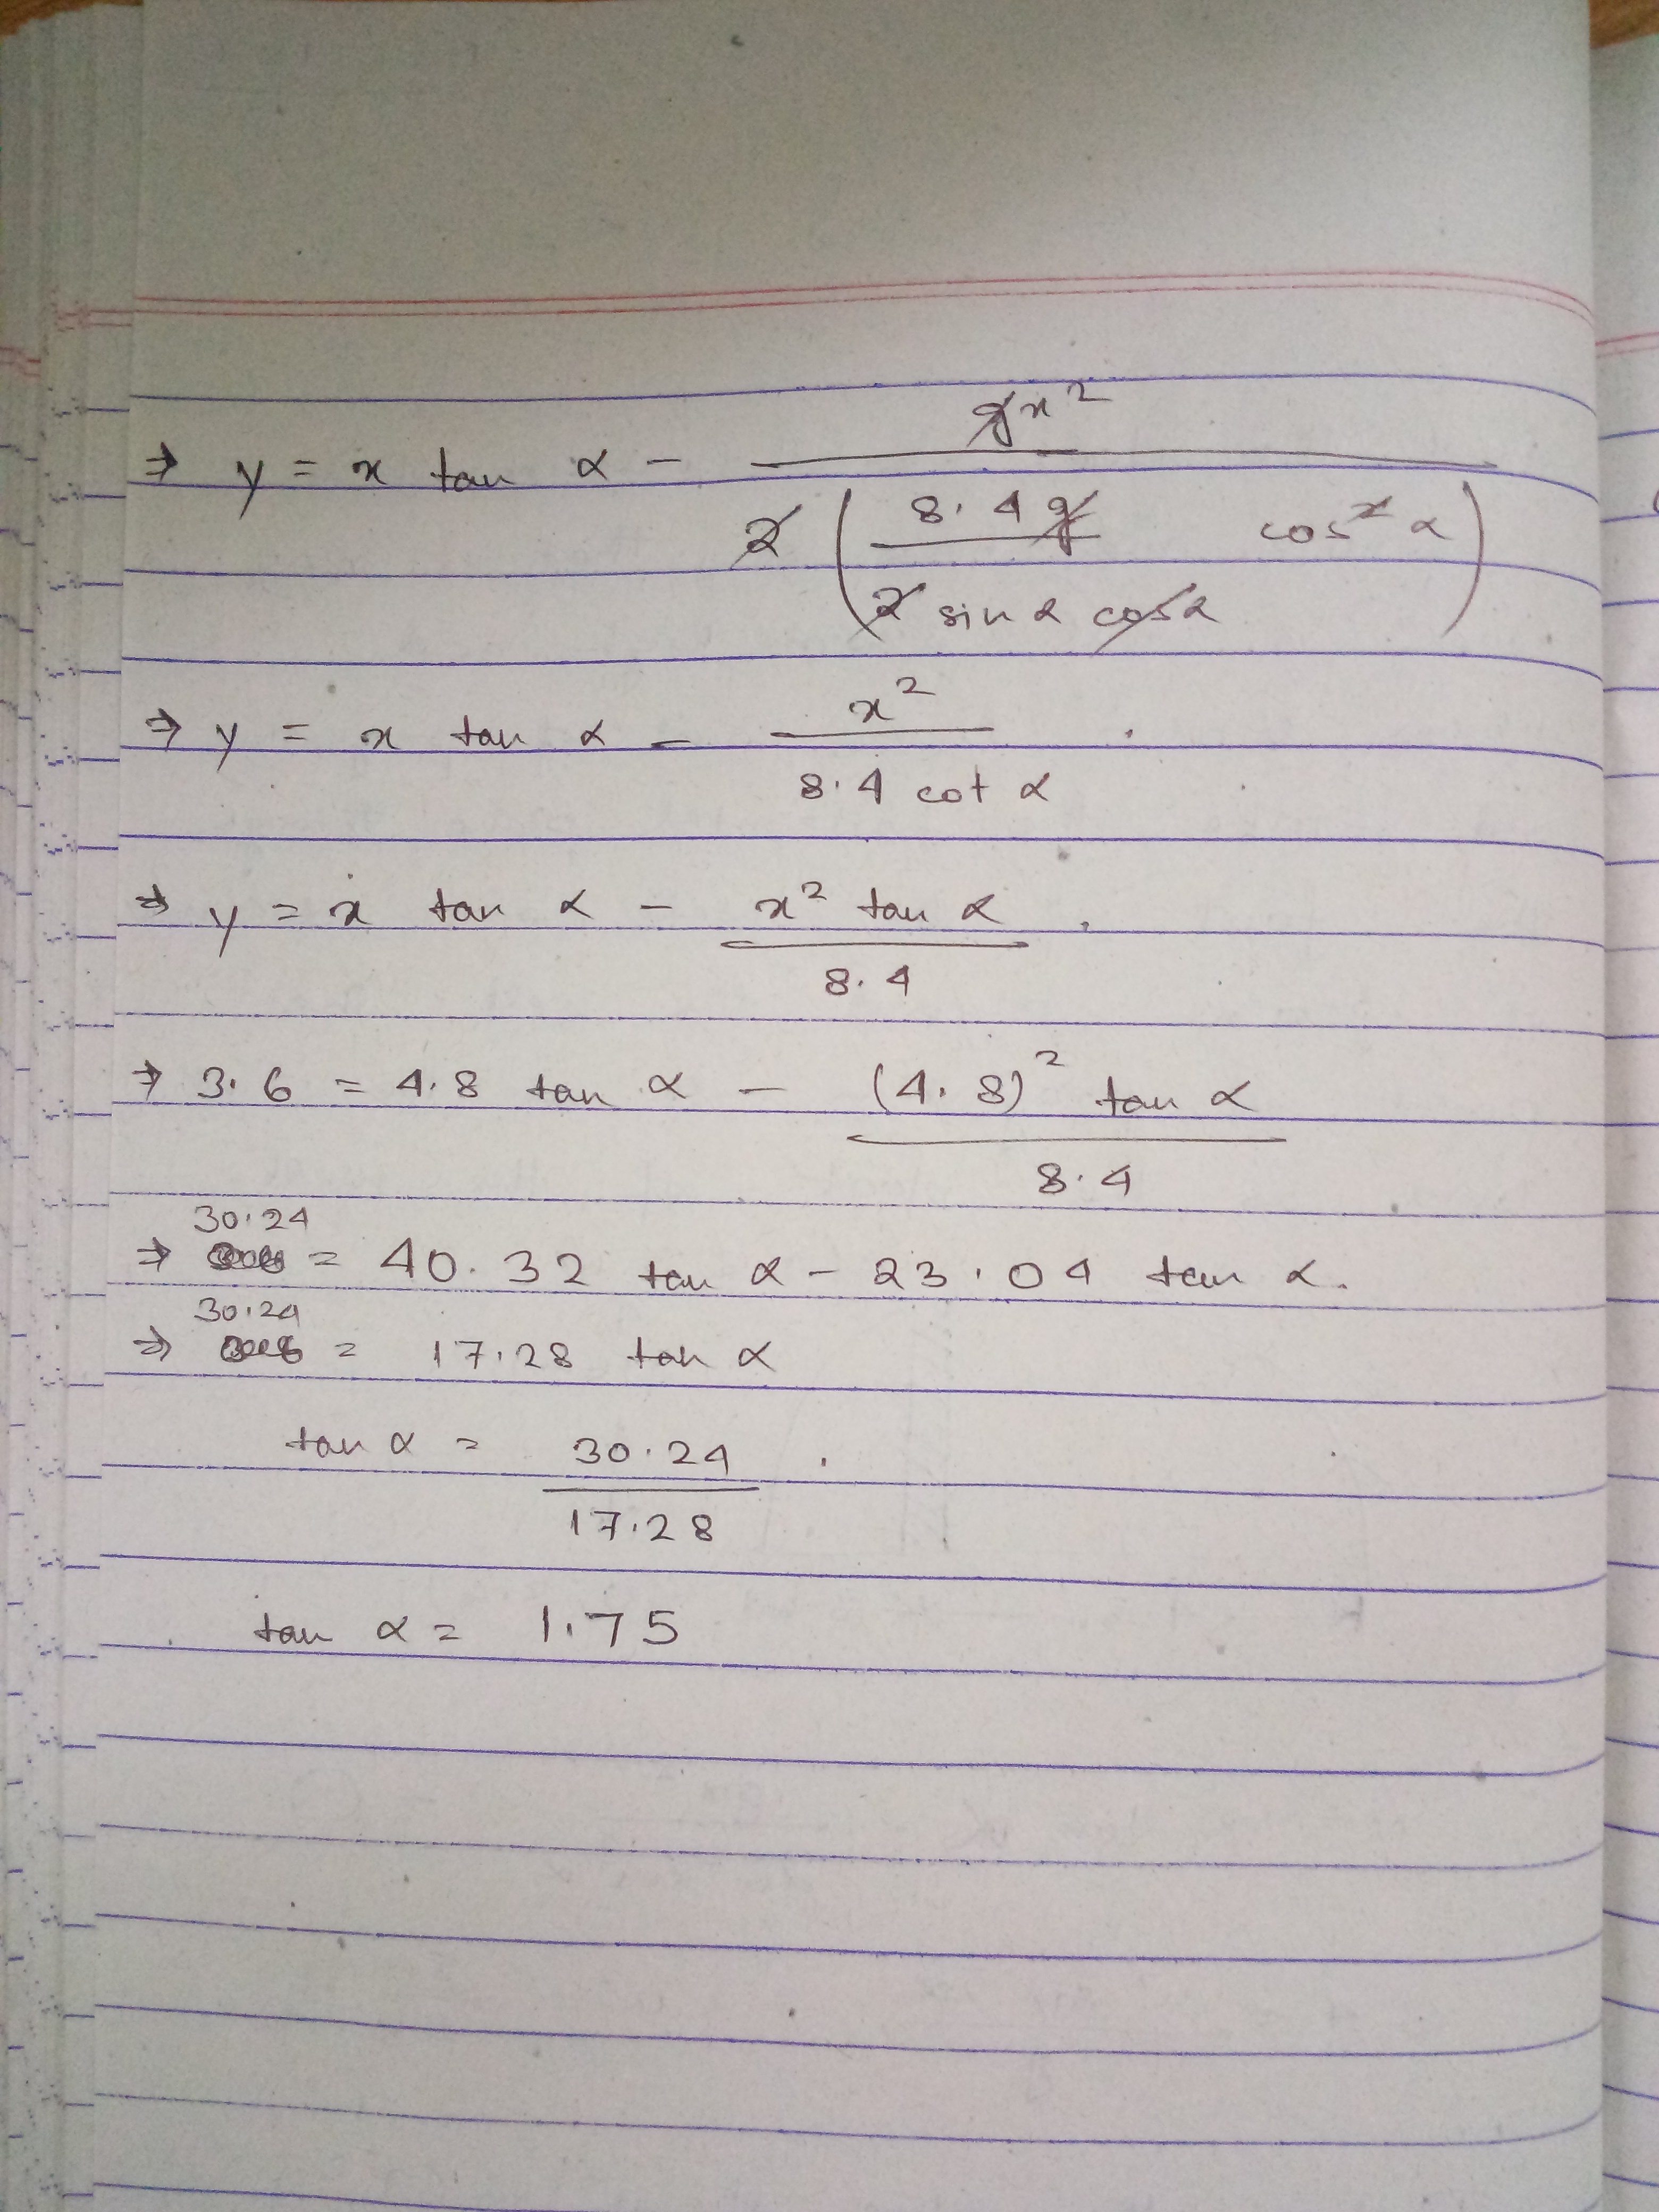 ⇒ y = x tan α - gx²
2 ( 8.4g cos² α )
2 sin α cos α
⇒ y = x tan α - x²
8.4 cot α
⇒ y = x tan α - x² tan α
8.4
⇒ 3.6 = 4.8 tan α - (4.8)² tan α
8.4
30.24
⇒ = 40.32 tan α - 23.04 tan α.
30.24
⇒ = 17.28 tan α
tan α = 30.24
17.28
tan α = 1.75